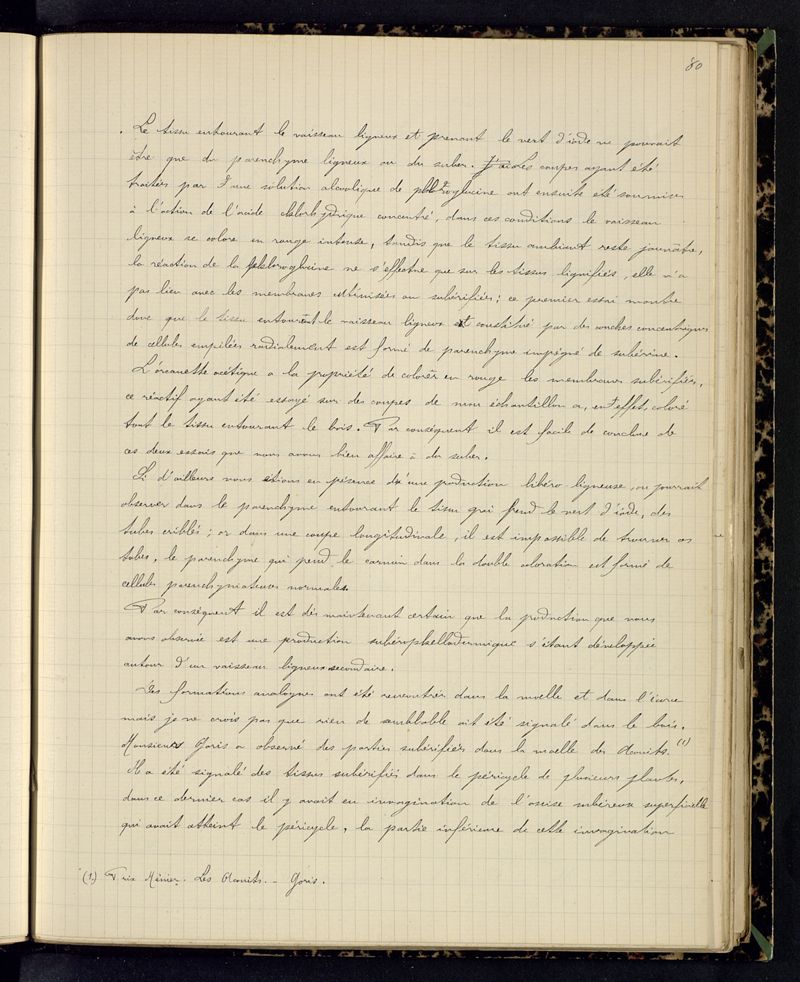 80
Le tissu entourant le vaisseau ligneux et prenant le vert d'iode ne pouvait
être que du parenchyme ligneux ou du suber. Les coupes ayant été
traitées par d'une solution alcoolique de phloroglucine ont ensuite été soumises
à l'action de l'acide chlorhydrique concentré, dans ces conditions le vaisseau
ligneux se colore en rouge intense, tandis que le tissu ambiant reste jaunâtre,
la réaction de la phloroglucine ne s'effectue que sur les tissus lignifiés, elle n'a
pas lieu avec les membranes cutinisées ou subérifiées; ce premier essai montre
donc que le tissu entourant le vaisseau ligneux et constitué par des couches concentriques
de cellules empilées radialement est formé de parenchyme imprégné de subérine.
L'orcanette acétique a la propriété de colorer en rouge les membranes subérifiées,
ce réactif ayant été essayé sur des coupes de mon échantillon a, en effet, coloré
tout le tissu entourant le bois. Par conséquent il est facile de conclure de
ces deux essais que nous avons bien affaire à du suber.
Si d'ailleurs nous étions en présence d'une production libéro ligneuse, on pourrait
observer dans le parenchyme entourant le tissu qui prend le vert d'iode, des
tubes criblés; or dans une coupe longitudinale, il est impossible de trouver ces
tubes, le parenchyme qui prend le carmin dans la double coloration est formé de
cellules parenchymateuses normales.
Par conséquent il est dès maintenant certain que la production que nous
avons observée est une production subérophellodermique s'étant développée
autour d'un vaisseau ligneux secondaire.
Des formations analogues ont été rencontrées dans la moelle et dans l'écorce
mais je ne crois pas que rien de semblable ait été signalé dans le bois.
Monsieur Goris a observé des parties subérifiées dans la moelle des Aconits. (1)
Il a été signalé des tissus subérifiés dans le péricycle de plusieurs plantes,
dans ce dernier cas il y avait eu invagination de l'assise subéreuse superficielle
qui avait atteint le péricycle, la partie inférieure de cette invagination
(1) Prix Ménier. Les Aconits. - Goris.